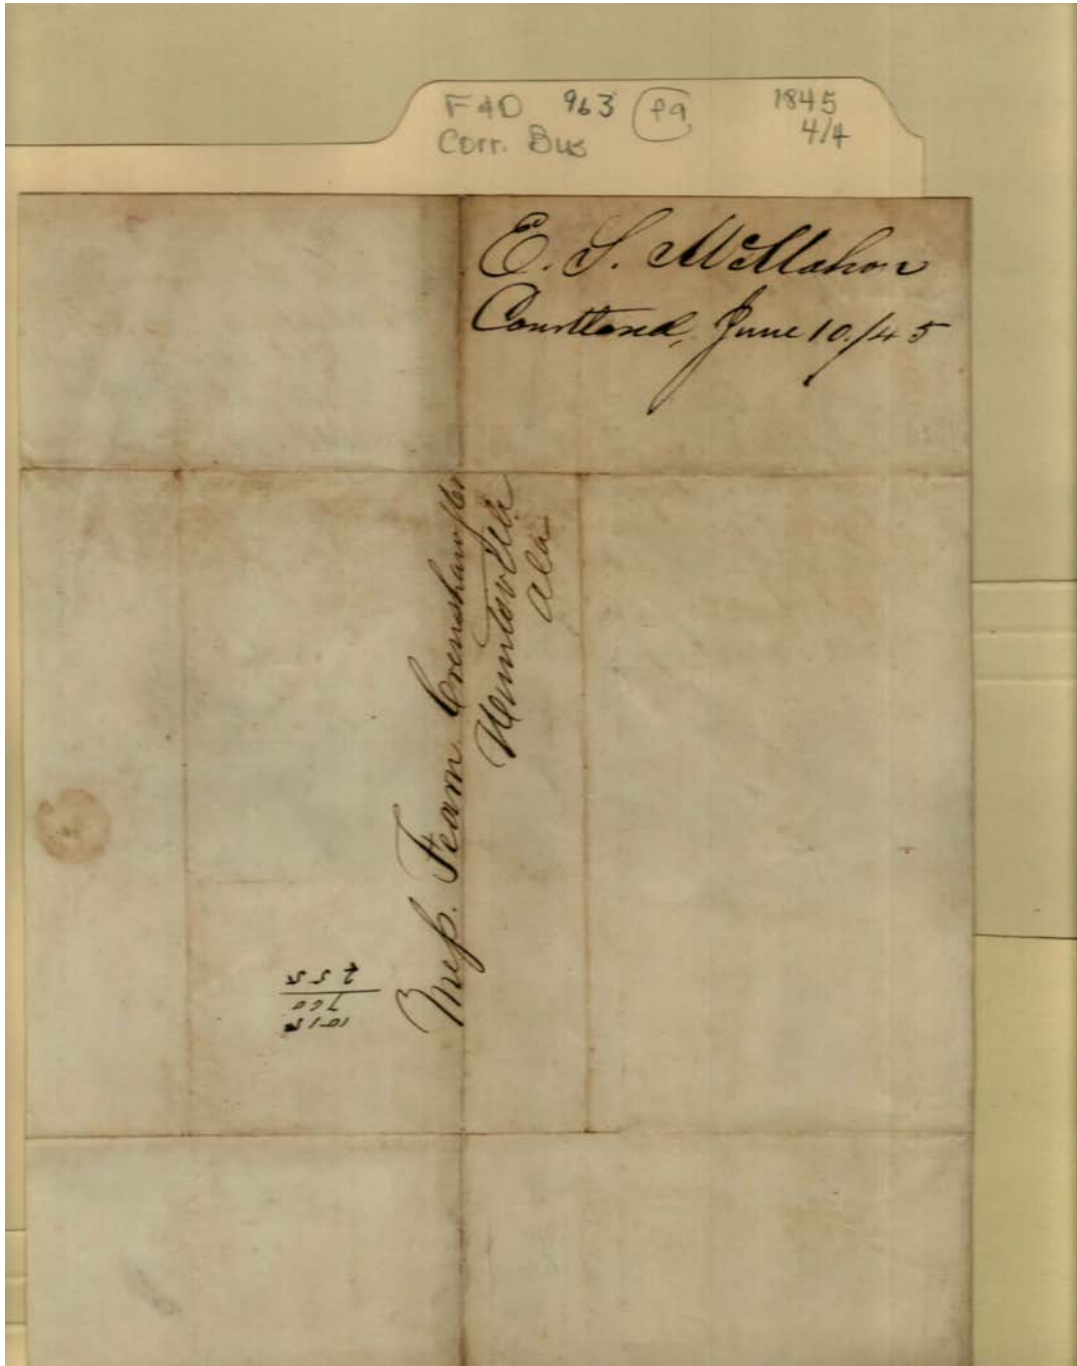 F&D 963 f9 1845
Corr. Bus 4/4
E. S. McMahon
Courtland, June 10./45
Mess. Fearn Crenshaw &Co
Huntsville
Ala